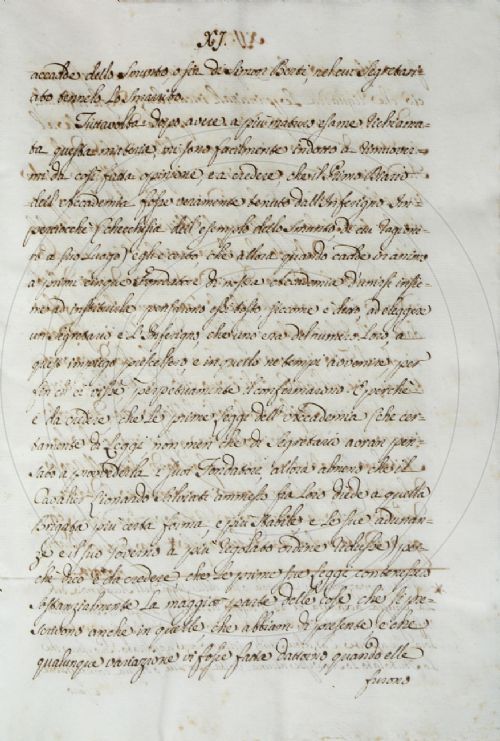 XI.
accadde dello Smunto o sia de Simon Berti, nel cui Segretari-
ato tennelo lo Smarrito.
Tuttavolta dopo avere a più maturo esame richiama-
ta questa materia, mi sono facilmente indotto a rimuover-
mi da così fatta opinione e a credere, che il Primo Diario
dell'Accademia fosse veramente tenuto dall'Inferigno Im-
perciocchè (checchesia dell'esempio dello Smunto di cui ragione-
rò a suo luogo) egli è certo che allora quando cadde in animo
a primi cinque Fondatori di nostra Accademia d'unirsi insie-
me ad instituirla pensarono essi tosto siccome è detto, ad eleggere
un Segretario e l'Inferigno, che uno era del numero loro, a
quest' impiego prescelsero, e in quello ne' tempi avvenire per
fin ch' ei visse perpetuamente il confermarono E perchè
è da credere che le prime leggi dell'Accademia (che cer-
tamente di leggi non men che di Segretario avran pen-
sato a provvederla i suoi Fondatori, allora almeno che il
Cavalier Lionardo Salviati ammesso fra loro diede a quella
brigata più certa forma, e più stabile e le sue adunan-
ze e il suo governo a più regolato ordine ridusse) per-
che dico è da credere che le prime sue leggi contenessero
sostanzialmente la maggior parte delle cose che si pre-
scrivono anche in quelle, che abbiam di presente e che
qualunque variazione vi fosse fatta dattorno quando elle
furono